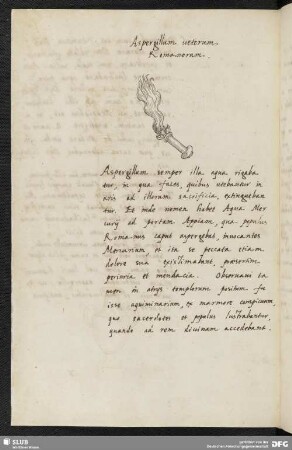 Aspergillum veterum
Romanorum.
Aspergillum semper illa aqua rigaba
tur, in qua faces, quibus utebantur in
aris ad illorum sacrificia, extingueban
tur. Et inde nomen habet Aqua Mer
curij ad portam Appiam, qua populus
Romanus caput aspergebat, invocantes
Mercurium, et ita se peccata etiam
delere sua existimabant, praesertim
periuria et mendacia. Observam ta
men in atrijs templorum positum fu
isse aquiminarium, ex marmore conspicuum
quo sacerdotes et populus lustrabantur,
quando ad rem divinam accedebant.
SLUB
Wir führen Wissen.
gefördert von der
Deutschen Forschungsgemeinschaft
DFG